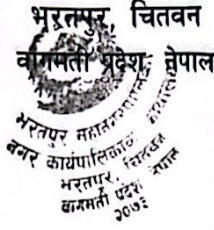 भरतपुर, चितवन
वागमती प्रदेश, नेपाल
भरतपुर महानगरपालिका
नगर कार्यपालिकाको कार्यालय
भरतपुर, चितवन
बागमती प्रदेश नेपाल
२०७३